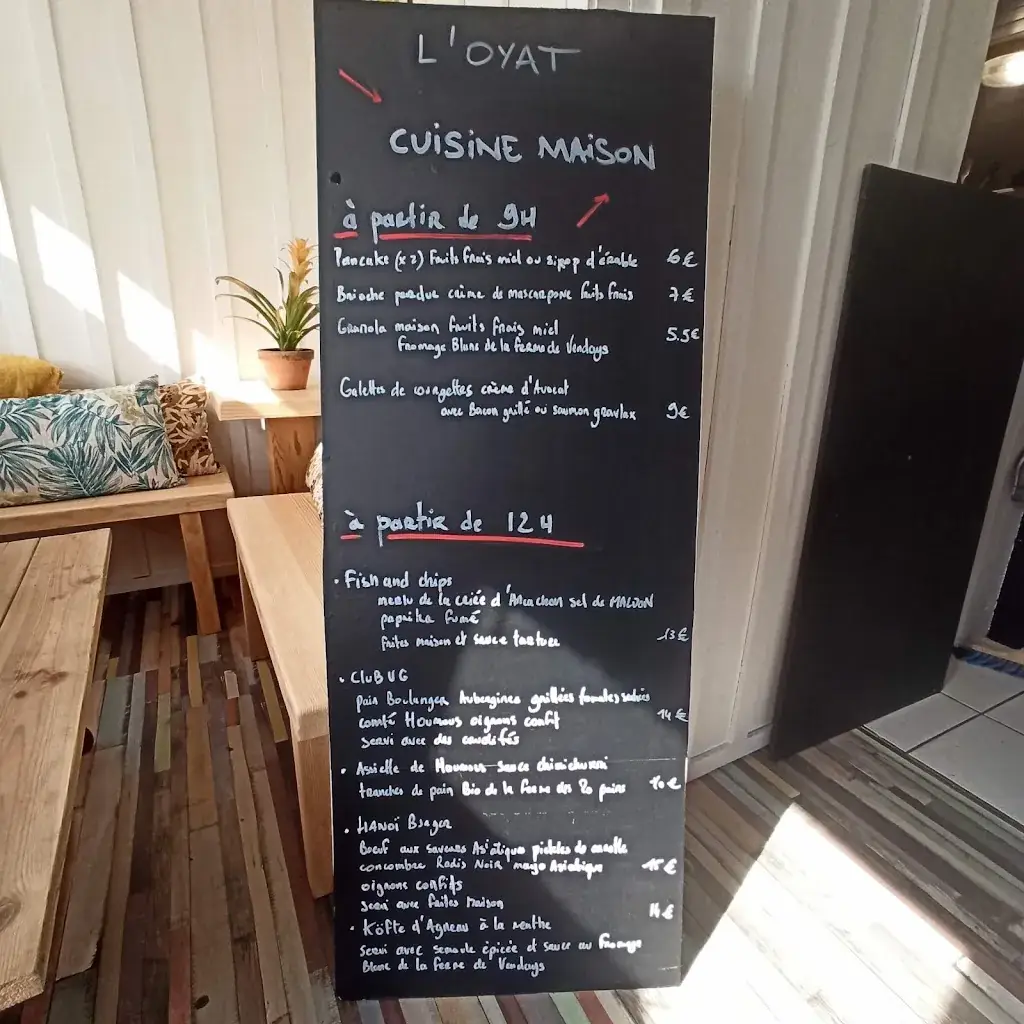 L'OYAT
CUISINE MAISON
à partir de 9H
Pancake (x2) Fruits frais miel ou sirop d'érable 6€
Brioche perdue crème de mascarpone fruits frais 7€
Granola maison fruits frais miel 5.5€
Fromage Blanc de la ferme de Vendays
Galettes de courgettes crème d'Avocat
avec Bacon grillé ou saumon gravlax 9€
à partir de 12H
• Fish and chips
merlu de la criée d'Arcachon sel de MALDON
paprika fumé
frites maison et sauce tartare 13€
• CluB VG
pain Boulanger Aubergines grillées tomates séchées
comté Houmous oignons confit 14€
servi avec des crudités
• Assiette de Houmous sauce chimichurri
tranches de pain Bio de la ferme des pins 10€
• HANOÏ Burger
Boeuf aux saveurs Asiatique pickles de carotte
concombre Radis Noir mayo Asiatique 15€
oignons confits
servi avec frites maison
• Köfte d'Agneau à la menthe 14€
servi avec semoule épicée et sauce au fromage
Blanc de la ferme de Vendays